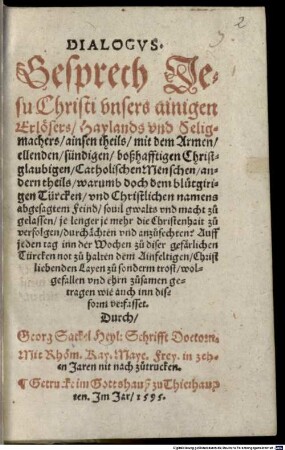 2
DIALOGVS.
Gesprech Je-
su Christi vnsers ainigen
Erlösers/ Haylands vnd Selig-
machers/ ainsen theils/ mit dem Armen/
ellenden/ sündigen/ boßhafftigen Christ-
glaubigen/ Catholischen Menschen/ an-
dern theils/ warumb doch dem blütgiri-
gen Türcken/ vnd Christlichen namens
abgesagtem Feind/ souil gwalts vnd macht zů
gelassen/ je lenger je mehr die Christenhait zů
verfolgen/ durchächten vnd anzůfechten? Auff
jeden tag inn der Wochen zů diser gefärlichen
Türcken not zů halten dem Ainfeltigen/ Christ
liebenden Layen zů sonderm trost/ wol-
gefallen vnd ehrn zůsamen ge-
tragen wie auch inn dise
form verfasset.
Durch/
Georg Sackel Heyl: Schrifft Doctorn.
Mit Rhöm. Kay. Maye. Frey. in zeh-
en Jaren nit nach zůtrucken.
¶ Getruckt im Gottshauß zů Thierhaup
ten. Im Jar/ 1595.